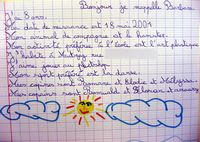 Bonjour je m'appelle Barbara
J'ai 8 ans.
Ma date de naissance est 18 mai 2001
Mon animal de compagnie est le hamster.
Mon activité préférée à l'école est l'art plastique
J'habite à
J'aime jouer au
Mon sport préféré est la danse.
Mes copines sont Romane et Elodie et Mélyssa.
Mes copains sont Romuald et Florian et